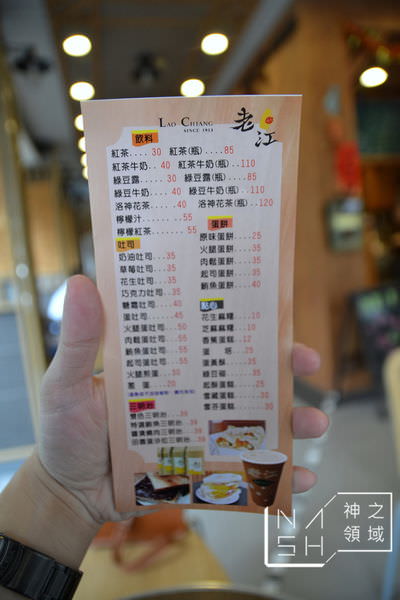 LAO CHIANG
SINCE 1953
老江
飲料
紅茶.... 30 紅茶(瓶)....85
紅茶牛奶.. 40 紅茶牛奶(瓶)..110
綠豆露... 30 綠豆露(瓶)....85
綠豆牛奶.. 40 綠豆牛奶(瓶)..110
洛神花茶.. 40 洛神花茶(瓶)..120
檸檬汁...... 55
檸檬紅茶..... 55
吐司
奶油吐司...35
草莓吐司...35
花生吐司...35
巧克力吐司.35
糖霜吐司...40
蛋吐司.....45
火腿蛋吐司..50
肉鬆蛋吐司..55
鮪魚蛋吐司..55
起司蛋吐司..55
火腿煎蛋...30
蔥 蛋....20
三明治
雙色三明治...39
特調鮪魚三明治..39
蛋餅
原味蛋餅...25
火腿蛋餅...35
肉鬆蛋餅...35
起司蛋餅...35
鮪魚蛋餅...40
點心
花生麻糬...10
芝麻麻糬...10
香蕉蛋糕...12
蛋 塔...25
蛋黃酥...35
綠豆碰...35
起酥蛋糕...30
雪藏蛋糕...30
雪芬蛋糕...30
NASH
神之領域